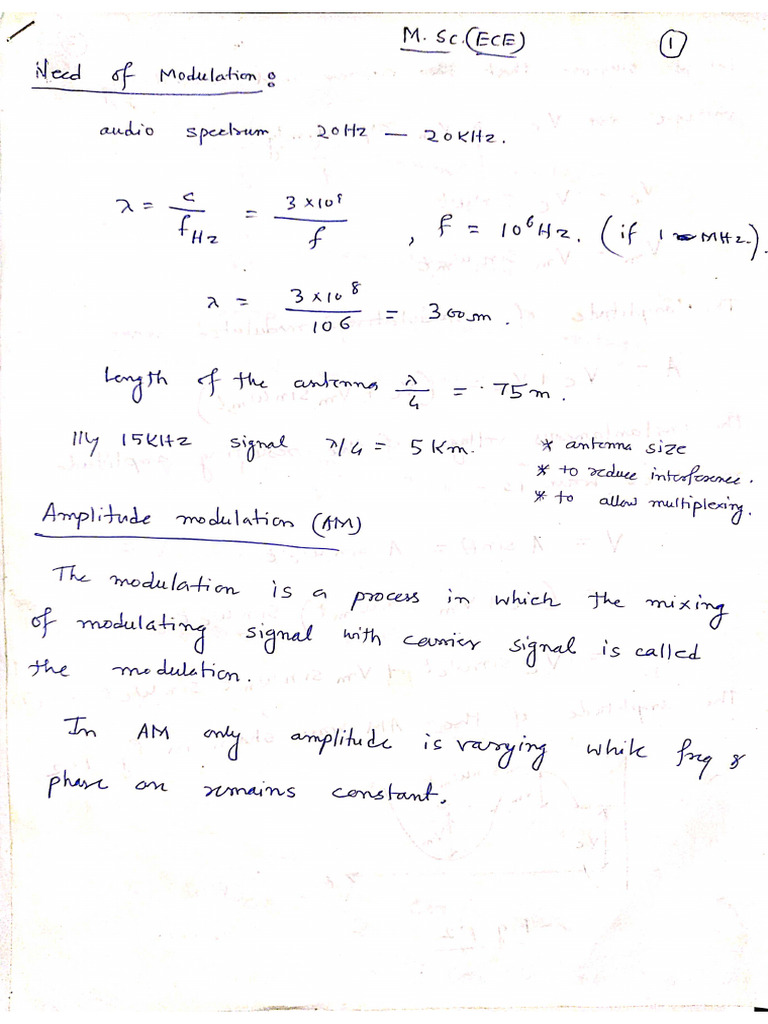 M. Sc.(ECE)
1
Need of Modulation:
audio spectrum 20Hz — 20KHz.
λ = c / f Hz = 3 ×10⁸ / f , f = 10⁶Hz. (if 1 MHz.).
λ = 3 ×10⁸ / 10⁶ = 300m.
Length of the antenna λ/4 = 75m.
111y 15KHz signal λ/4 = 5 Km.
* antenna size
* to reduce interference.
* to allow multiplexing.
Amplitude modulation (AM)
The modulation is a process in which the mixing
of modulating signal with carrier signal is called
the modulation.
In AM only amplitude is varying while freq &
phase on remains constant.